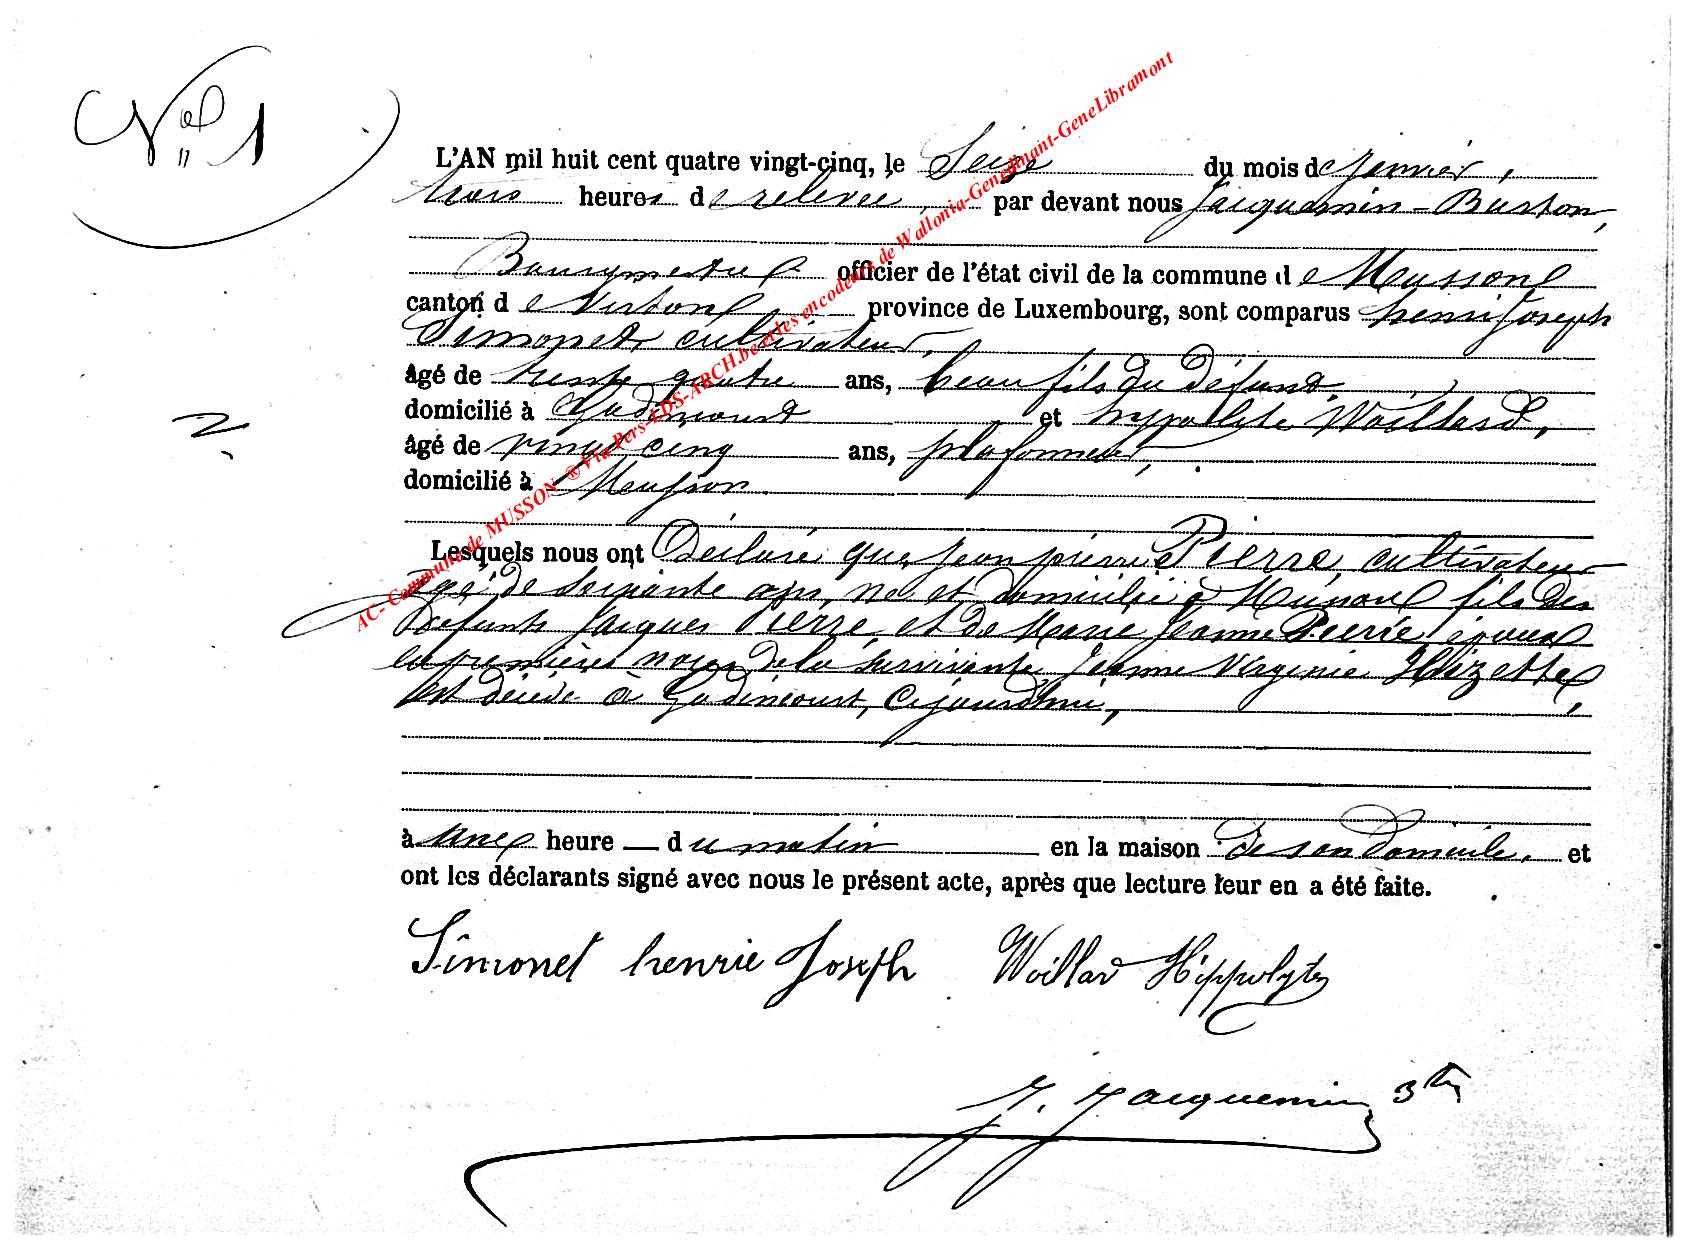 N° 1
L'AN mil huit cent quatre vingt-cinq, le Seize du mois de janvier,
trois heures de relevée, par devant nous Jacquemin-Burton,
Bourgmestre officier de l'état civil de la commune de Musson
canton de Virton province de Luxembourg, sont comparus henri Joseph
Simonet cultivateur,
âgé de trente quatre ans, beau fils du défunt,
domicilié à Gadincourt et hypolite Woillard,
âgé de vingt cinq ans, plafonneur,
domicilié à Musson
Lesquels nous ont Déclaré que Jean pierre Pierre, cultivateur
âgé de soixante ans, né et domicilié à Musson fils des
Défunts Jacques Pierre et de Marie Jeanne Pierre époux
en premières noces de la survivante Jeanne Virginie Hizette,
est décédé à Gadincourt, cejourd'hui,
à une heure du matin en la maison de son domicile, et
ont les déclarants signé avec nous le présent acte, après que lecture leur en a été faite.
Simonet henrie Joseph Woillar Hippolyte
J. Jacquemin Btn
AC- Commune de MUSSON ® Via Pers-LDS-ARCH.be et les encodeurs de Wallonia-Genedinant-GeneLibramont